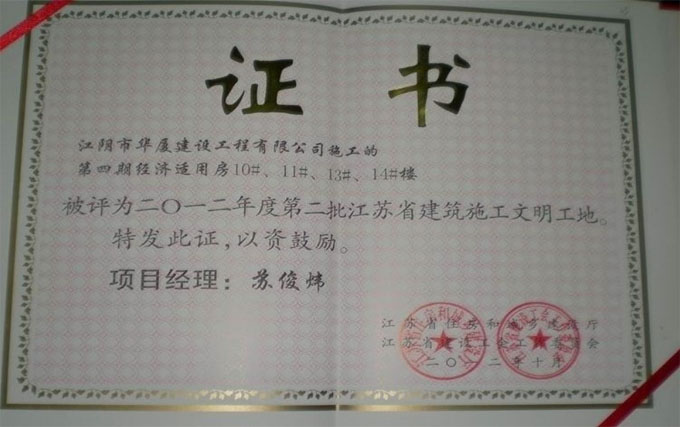 证 书
江阴市华厦建设工程有限公司施工的
第四期经济适用房10#、11#、13#、14#楼
被评为二〇一二年度第二批江苏省建筑施工文明工地。
特发此证,以资鼓励。
项目经理：苏俊炜
江苏省住房和城乡建设厅
江苏省建设工会工作委员会
二〇一二年十月